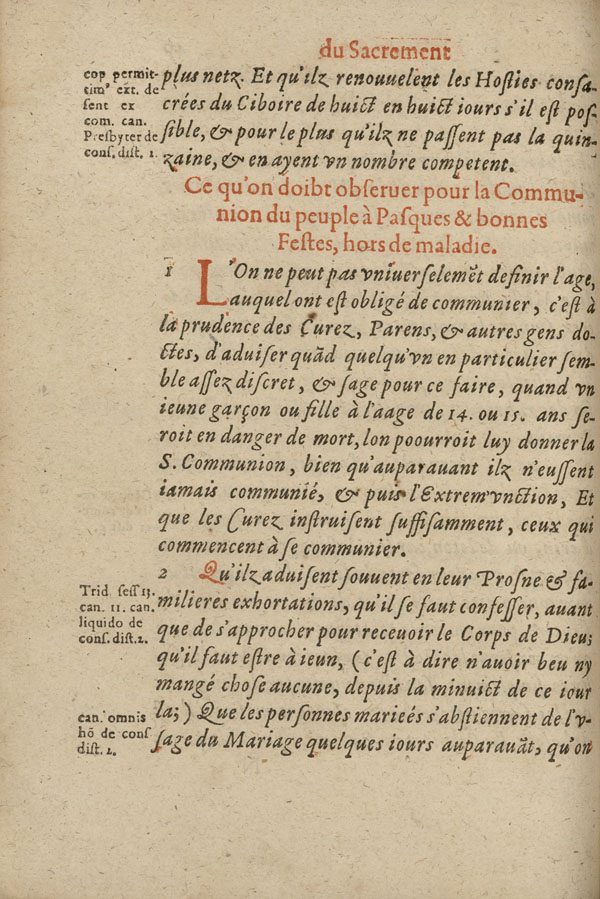 du Sacrement
cop permit-
tim' ext. de
sent ex
com. can.
Presbyter de
cons. dist. 1.
plus netz. Et qu'ilz renouuelent les Hosties consa-
crées du Ciboire de huict en huict iours s'il est pos-
sible, & pour le plus qu'ilz ne passent pas la quin-
zaine, & en ayent vn nombre competent.
Ce qu'on doibt obseruer pour la Commu-
nion du peuple à Pasques & bonnes
Festes, hors de maladie.
1 L'On ne peut pas vniuerselemēt definir l'age,
auquel ont est obligé de communier, c'est à
la prudence des Curez, Parens, & autres gens do-
ctes, d'aduiser quād quelqu'vn en particulier sem-
ble assez discret, & sage pour ce faire, quand vn
ieune garçon ou fille à l'aage de 14. ou 15. ans se-
roit en danger de mort, lon poourroit luy donner la
S. Communion, bien qu'auparauant ilz n'eussent
iamais communié, & puis l'Extrem'vnction, Et
que les Curez instruisent suffisamment, ceux qui
commencent à se communier.
2 Qu'ilz aduisent souuent en leur Prosne & fa-
Trid. sess 13.
can. 11. can.
liquido de
cons. dist. 2.
milieres exhortations, qu'il se faut confesser, auant
que de s'approcher pour receuoir le Corps de Dieu;
qu'il faut estre à ieun, (c'est à dire n'auoir beu ny
mangé chose aucune, depuis la minuict de ce iour
can. omnis
hō de cons
dist. 2.
la;) Que les personnes mariées s'abstiennent de l'v-
sage du Mariage quelques iours auparauāt, qu'on